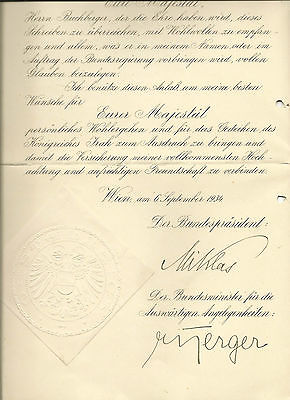 Eure Majestät,
Herrn Buchberger, der die Ehre haben wird, dieses
Schreiben zu überreichen, mit Wohlwollen zu empfan-
gen und allem, was er in meinem Namen oder im
Auftrag der Bundesregierung vorbringen wird, vollen
Glauben beizulegen.
Ich benütze diesen Anlaß, um meine besten
Wünsche für
Eurer Majestät
persönliches Wohlergehen und für das Gedeihen des
Königreiches Irak zum Ausdruck zu bringen und
damit die Versicherung meiner vollkommensten Hoch-
achtung und aufrichtigen Freundschaft zu verbinden.
Wien, am 6 September 1934
Der Bundespräsident:
Miklas
Der Bundesminister für die
Auswärtigen Angelegenheiten: